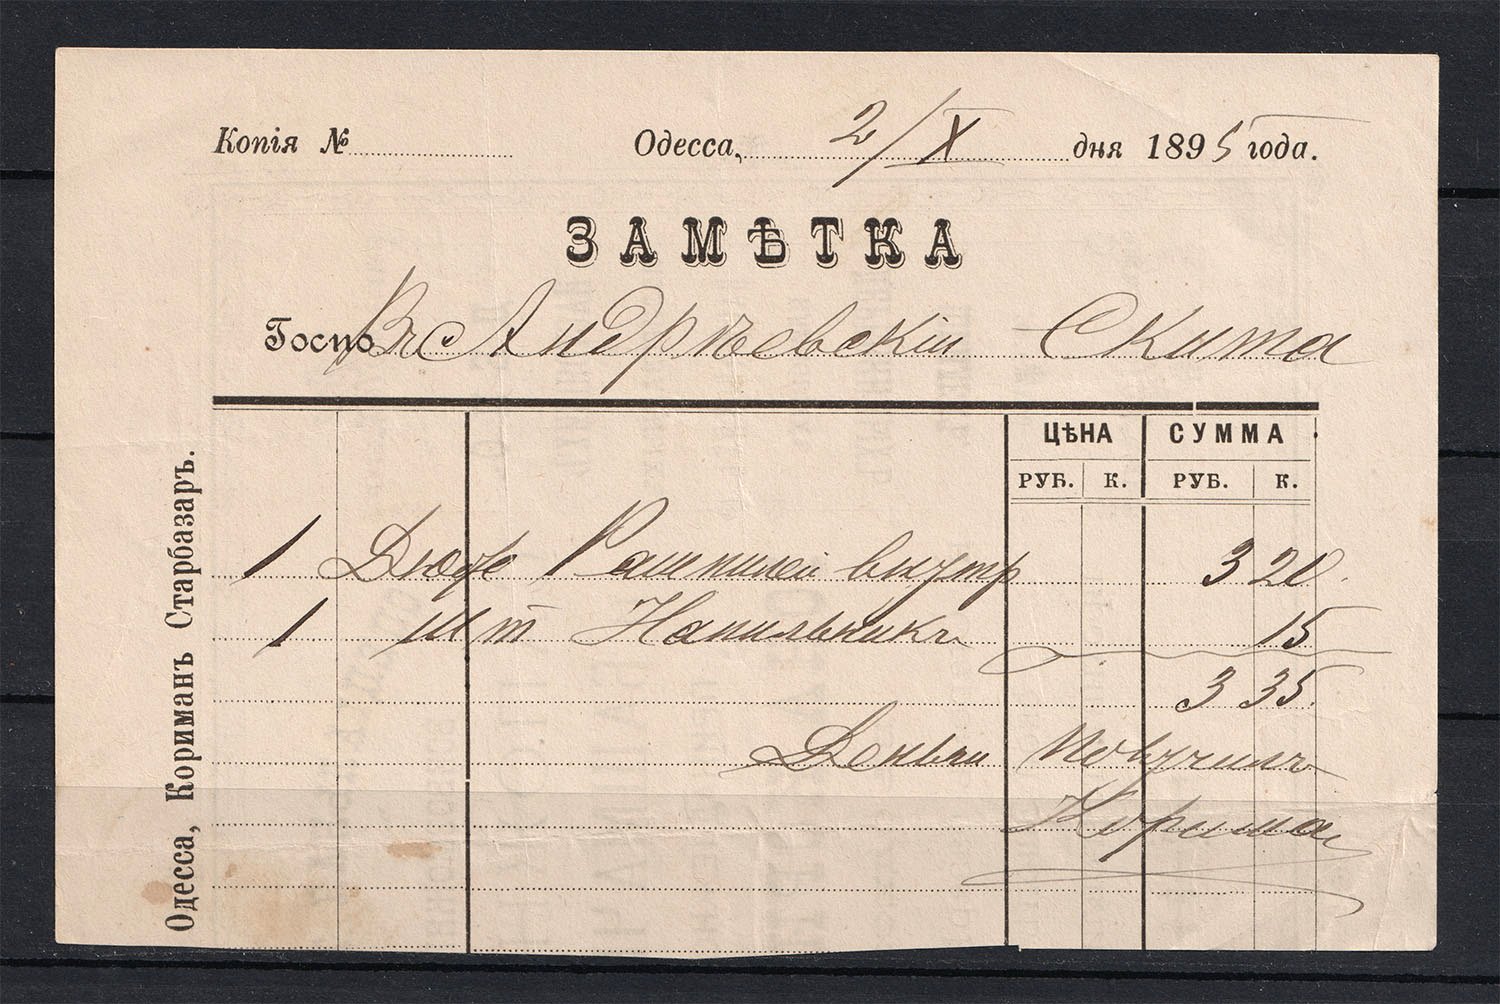 Копія №
Одесса, 2/X дня 1895 года.
ЗАМѢТКА
Госпо Въ Андреевскій Скита
ЦѢНА СУММА
РУБ. К. РУБ. К.
1 Дюж Рашпилей внутр 3 20.
1 шт Напильникъ 15
3 35.
Деньги получилъ
Кориман
Одесса, Кориманъ Старбазаръ.